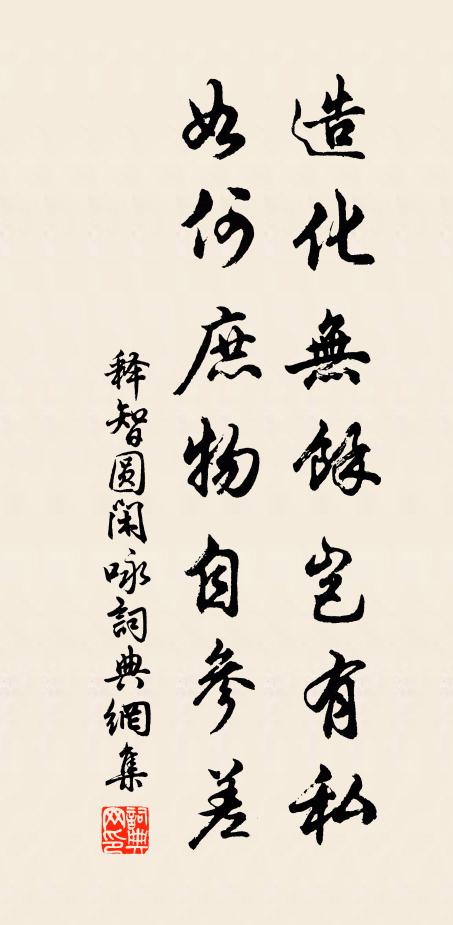 造化無餘豈有私
如何庶物自參差
释智圆閑咏詞典網集
詞典网印